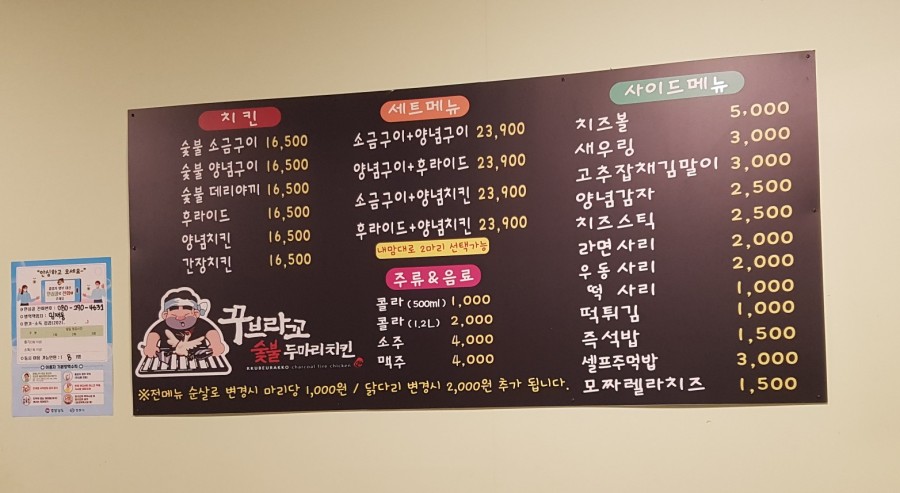 치킨
숯불 소금구이 16,500
숯불 양념구이 16,500
숯불 데리야끼 16,500
후라이드 16,500
양념치킨 16,500
간장치킨 16,500
세트메뉴
소금구이+양념구이 23,900
양념구이+후라이드 23,900
소금구이+양념치킨 23,900
후라이드+양념치킨 23,900
내맘대로 2마리 선택가능
주류&음료
콜라 (500ml) 1,000
콜라 (1.2L) 2,000
소주 4,000
맥주 4,000
사이드메뉴
치즈볼 5,000
새우링 3,000
고추잡채김말이 3,000
양념감자 2,500
치즈스틱 2,500
라면사리 2,000
우동 사리 2,000
떡 사리 1,000
떡튀김 1,000
즉석밥 1,500
셀프주먹밥 3,000
모짜렐라치즈 1,500
꾸브라꼬
숯불 두마리치킨
KKUBEURAKKO charcoal fire chicken
※전메뉴 순살로 변경시 마리당 1,000원 / 닭다리 변경시 2,000원 추가 됩니다.
"안심하고 드세요~"
080-290-4631